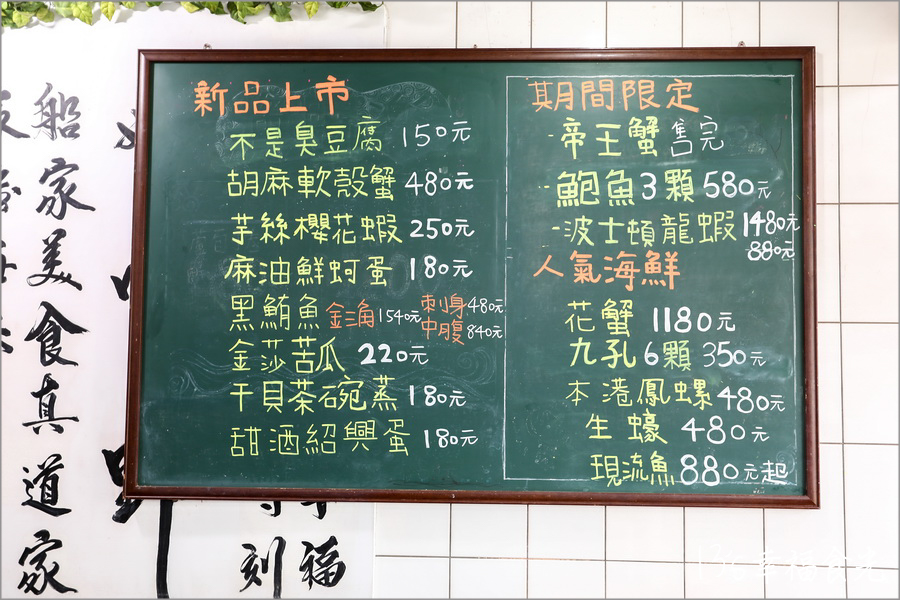 新品上市
不是臭豆腐 150元
胡麻軟殼蟹 480元
芋絲櫻花蝦 250元
麻油鮮蚵蛋 180元
黑鮪魚 金三角 1540元 刺身 480元
中腹 840元
金莎苦瓜 220元
干貝茶碗蒸 180元
甜酒紹興蛋 180元
期間限定
-帝王蟹 售完
-鮑魚3顆 580元
-波士頓龍蝦 1480元
880元
人氣海鮮
花蟹 1180元
九孔6顆 350元
本港鳳螺 480元
生蠔 480元
現流魚 880元起
船家美食真道家
福
刻